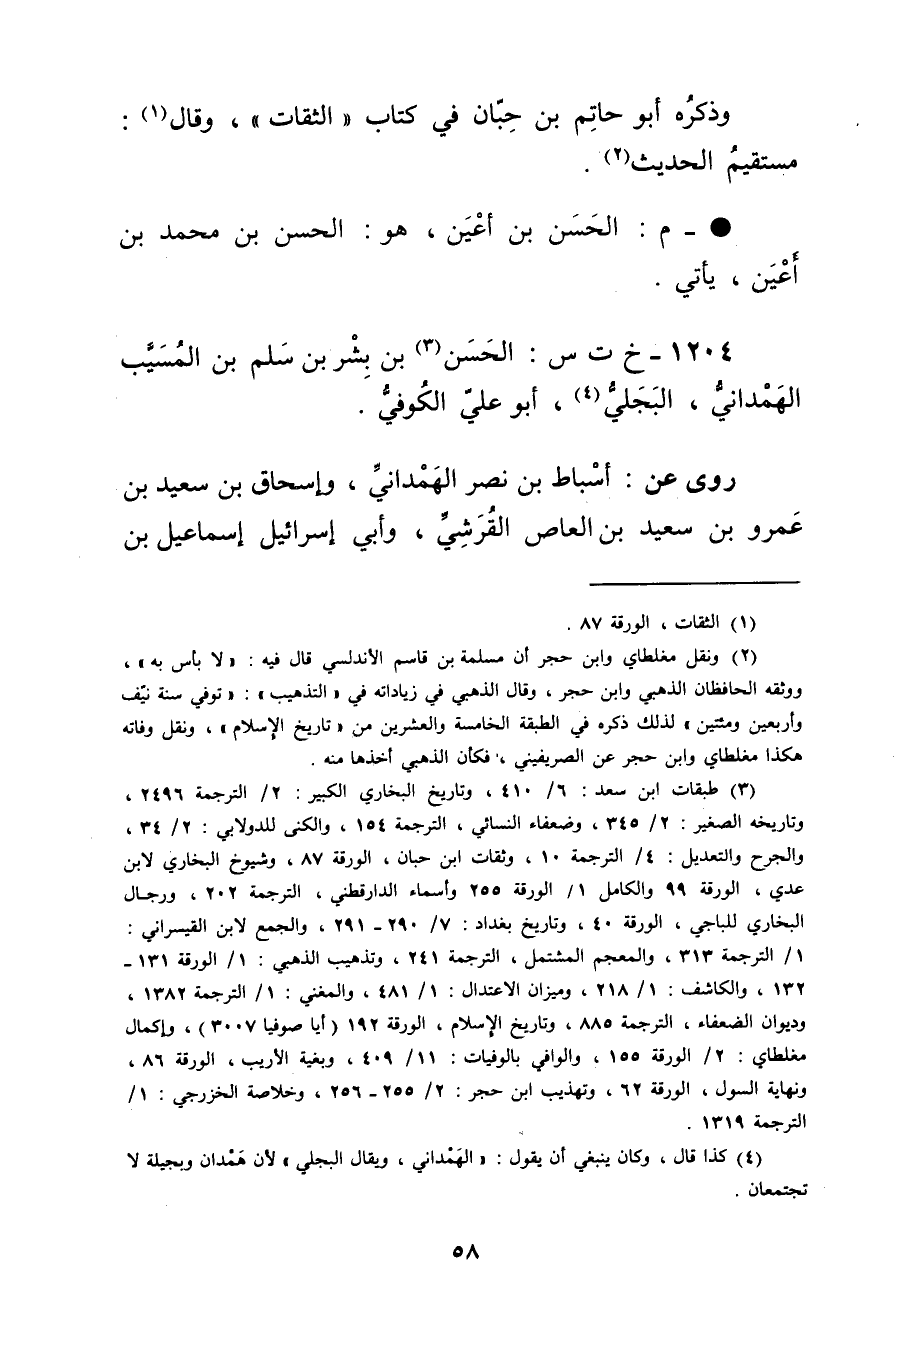 وذكرُه أبو حاتِم بن حِبّان في كتاب « الثقات » ، وقال(١) :
مستقيمُ الحديث(٢) .
● ـ م : الحَسَن بن أَعْيَن ، هو : الحسن بن محمد بن
أَعْيَن ، يأتي .
١٢٠٤ ـ خ ت س : الحَسَن(٣) بن بِشْر بن سَلم بن المُسَيَّب
الهَمْدانيُّ ، البَجَليُّ(٤) ، أبو عليّ الكُوفيُّ .
روى عن : أسْباط بن نصر الهَمْدانيِّ ، وإسحاق بن سعيد بن
عَمرو بن سعيد بن العاص القُرَشِيِّ ، وأبي إسرائيل إسماعيل بن
(١) الثقات ، الورقة ٨٧ .
(٢) ونقل مغلطاي وابن حجر أن مسلمة بن قاسم الأندلسي قال فيه : « لا بأس به » ،
ووثقه الحافظان الذهبي وابن حجر ، وقال الذهبي في زياداته في « التذهيب » : « توفي سنة نيّف
وأربعين ومئتين » لذلك ذكره في الطبقة الخامسة والعشرين من « تاريخ الإسلام » ، ونقل وفاته
هكذا مغلطاي وابن حجر عن الصريفيني ، فكأن الذهبي أخذها منه .
(٣) طبقات ابن سعد : ٦/ ٤١٠ ، وتاريخ البخاري الكبير : ٢/ الترجمة ٢٤٩٦ ،
وتاريخه الصغير : ٢/ ٣٤٥ ، وضعفاء النسائي ، الترجمة ١٥٤ ، والكنى للدولابي : ٢/ ٣٤ ،
والجرح والتعديل : ٤/ الترجمة ١٠ ، وثقات ابن حبان ، الورقة ٨٧ ، وشيوخ البخاري لابن
عدي ، الورقة ٩٩ والكامل ١/ الورقة ٢٥٥ وأسماء الدارقطني ، الترجمة ٢٠٢ ، ورجال
البخاري للباجي ، الورقة ٤٠ ، وتاريخ بغداد : ٧/ ٢٩٠ ـ ٢٩١ ، والجمع لابن القيسراني :
١/ الترجمة ٣١٣ ، والمعجم المشتمل ، الترجمة ٢٤١ ، وتذهيب الذهبي : ١/ الورقة ١٣١ ـ
١٣٢ ، والكاشف : ١/ ٢١٨ ، وميزان الاعتدال : ١/ ٤٨١ ، والمغني : ١/ الترجمة ١٣٨٢ ،
وديوان الضعفاء ، الترجمة ٨٨٥ ، وتاريخ الإسلام ، الورقة ١٩٢ (أيا صوفيا ٣٠٠٧) ، وإكمال
مغلطاي : ٢/ الورقة ١٥٥ ، والوافي بالوفيات : ١١/ ٤٠٩ ، وبغية الأريب ، الورقة ٨٦ ،
ونهاية السول ، الورقة ٦٢ ، وتهذيب ابن حجر : ٢/ ٢٥٥ ـ ٢٥٦ ، وخلاصة الخزرجي : ١/
الترجمة ١٣١٩ .
(٤) كذا قال ، وكان ينبغي أن يقول : « الهَمْداني ، ويقال البجلي » لأن هَمْدان وبجيلة لا
تجتمعان .
٥٨